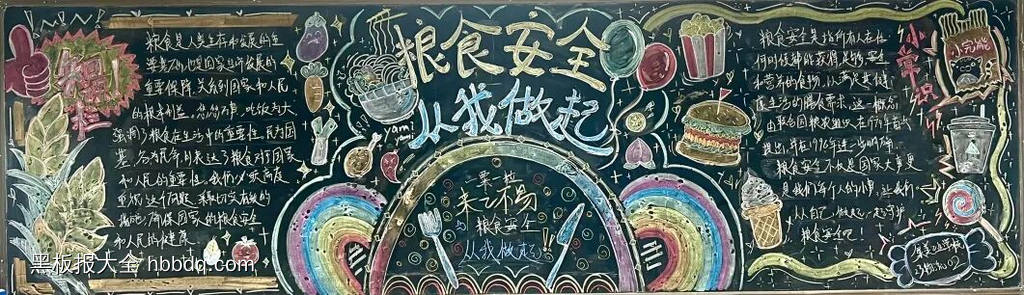 粮食安全
从我做起
粮食是人类生存和发展的重
要基础,也是国家经济发展的
重要保障,关系到国家和人民
的根本利益。
强调了粮食在生活中的重要性,
表达了粮食对于国家
和人民的重要性。我们必须高度
重视这个问题,
措施,确保国家的粮食安全
和人民的健康。
yam
yam!
一粟一粒
来之不易
粮食安全
从我做起
小常识
粮食安全是指所有人在任
何时候都能获得足够安全
和营养的食物,以满足其健
康生活的膳食需求。这一概念
由联合国粮农组织在1974年首次
提出,并在1996年进一步明确。
粮食安全不仅是国家大事,更
是我们每个人的小事,让我们
从自己做起,一起守护
粮食安全吧!
小浣熊
黑板报大全 hbbdq.com